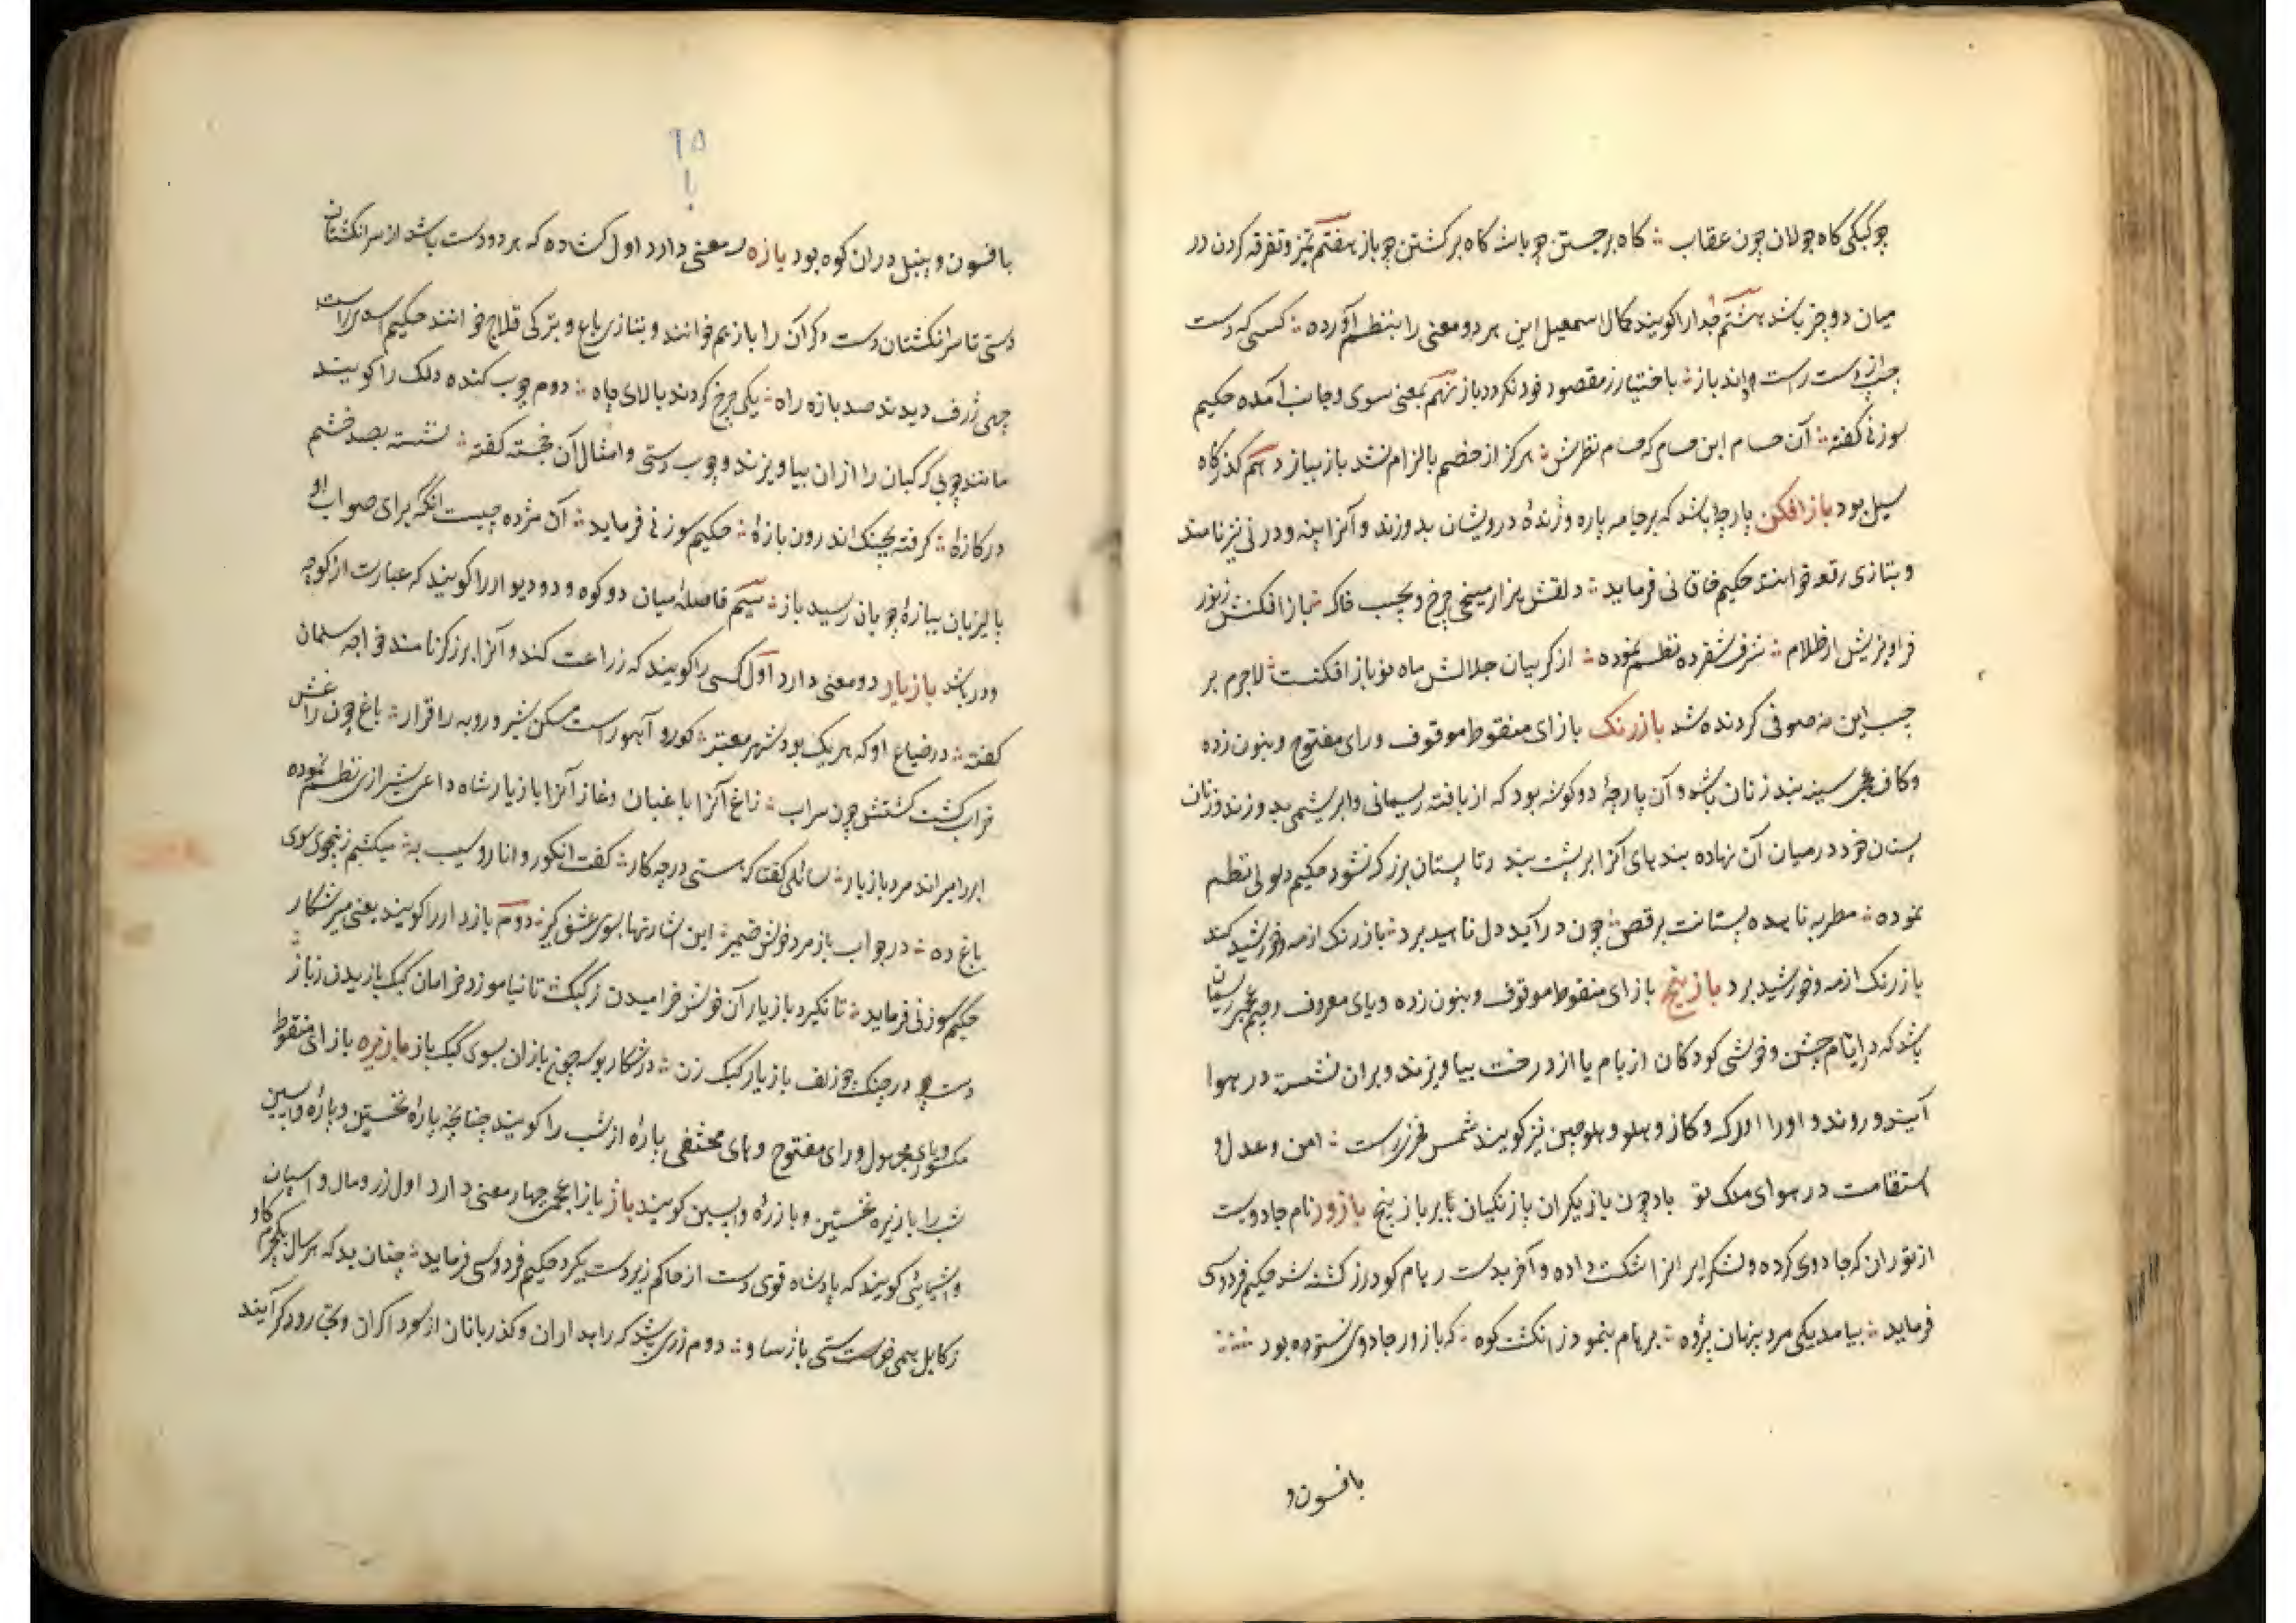 چو کبکی کاه جولان چون عقاب ؞ کاه برجستن چو باشه کاه برکشتن چو باز هفتم تمیز و تفرقه کردن در
میان دو چیز باشد هشتم جدا را کویند کمال اسمعیل این هر دو معنی را بنظم آورده ؞ کسی که دست
چپ از دست راست داند باز ؞ باختیار ز مقصود خود نکردد باز نهم بمعنی سوی و جانب آمده حکیم
سوزنی کفته ؞ آن حسام این حسام که حسام نظرش ؞ هرکز از خصم بالزام نشد باز بیاز دهم کذرکاه
سیل بود باز افکن پارچها باشد که بر جامه پاره و ژندهٔ درویشان بدوزند و آنرا پینه و درنی نیز نامند
و بتازی رقعه خوانند حکیم خاقانی فرماید ؞ دلقش هزار میخی چرخ و بجیب خاک ؞ باز افکنش ز نور
فراویزش از ظلام ؞ شرف شفرده نظم نموده ؞ از کریبان جلالش ماه نو باز افکنست ؞ لاجرم بر
جیب این نه صوفی کردنده شد بازرنک بازای منقوط موقوف و رای مفتوح و بنون زده
و کاف عجمی سینه بند زنان باشد و آن پارچهٔ دو کوشه بود که از بافته ریسمانی و ابریشمی بدوزند و زنان
پستان خود در میان آن نهاده بندهای آنرا بر پشت بندند تا پستان بزرک نشود حکیم نظم
نموده ؞ مطربه ناهیده پستانت برقص ؞ چون درآید دل ناهید برد ؞ بازرنک از مه و خورشید کند
بازرنک از مه و خورشید برد بازپنج بازای منقوط موقوف و بنون زده و یای معروف و جیم عجمی ریسمان
باشد که در ایام جشن و خوشی کودکان از بام یا از درخت بیاویزند و بران نشسته در هوا
آیند و روند و او را اورک و کاز و هلو و هلوجین نیز کویند شمس فخری راست ؞ امن و عدل و
استقامت در هوای ملک تو بادچون بازیکران بازنکیان بر بازپنج بازور نام جادویست
از توران که جادوی کرده و لشکر ایرانرا شکست داده و آخر بدست رهام کودرز کشته شد حکیم فردوسی
فرماید ؞ بیامد یکی مرد یزدان پژوه ؞ برهام بنمود ز انکشت کوه ؞ که بازور جادوی نستوده بود ؞
بافسون و
۹۵
با
بافسون و بنبل دران کوه بود بازه سه معنی دارد اول کشاده که هر دو دست باشد از سر انکشتان
دستی تا سر انکشتان دست دکر آن را باز هم خوانند و بتازی باع و بترکی قلاج خوانند حکیم اسدی راست
چهی ژرف دیدند صد بازه راه ؞ یکی چرخ کردند بالای چاه ؞ دوم چوب کنده دلک را کویند
مانند چوبی که کپان را ازان بیاویزند و چوب دستی و امثال آن خجسته کفته ؞ نشسته بصد خشم
در کازهٔ ؞ کرفته بچنک اندرون بازهٔ ؞ حکیم سوزنی فرماید ؞ آن مژده چیست انکه برای صواب او
پالیزبان ببازهٔ چوپان رسید باز ؞ سیم فاصلهٔ میان دو کوه و دو دیوار را کویند که عبارت از کوچه
و در باشد بازیار دو معنی دارد اول کسی را کویند که زراعت کند و آنرا برزکر نامند خواجه سلمان
کفته ؞ در ضیاع او که هر یک بود شهر معتبر ؞ کور و آهو راست مسکن شیر و روبه را قرار ؞ باغ چون راغش
خراب کشت کشتش چون سراب ؞ زاغ آنرا باغبان و غاز آنرا بازیار شاه داعی شیرازی نظم نموده
ابرا میراند مرد بازیار ؞ سائلی کفتا که هستی در چه کار ؞ کفت انکور و انار و سیب به ؞ میکشیم زینجوی سوی
باغ ده ؞ در جواب باز مرد خوش ضمیر ؞ این اشارتها بسوی عشق کیر ؞ دوم بازدار را کویند یعنی میر شکار
حکیم سوزنی فرماید ؞ تا نکیرد بازیار آن خوش خرامیدن ز کبک ؞ تا نیاموزد خرامان کبک بازیدن ز باز
دست چو در چنک چو زلف بازیار کبک زن ؞ در شکار بوسه چون بازان بسوی کبک باز بازیره بازای منقوط
مکسور و یای مجهول و رای مفتوح و های مختفی پارهٔ از شب را کویند چنانچه پارهٔ نخستین و پارهٔ واپسین
شب را بازیره نخستین و بازیرهٔ واپسین کویند باژ بازا عجمی چهار معنی دارد اول زر و مال و اسبان
و اشیائی کویند که پادشاه قوی دست از حاکم زیردست بکیرد حکیم فردوسی فرماید ؞ چنان بد که هر سال یکچرم کاو
ز کابل همی خواست باژ ساو ؞ دوم زری باشد که راهداران و کذربانان از سوداکران و تجار و دکر آیند